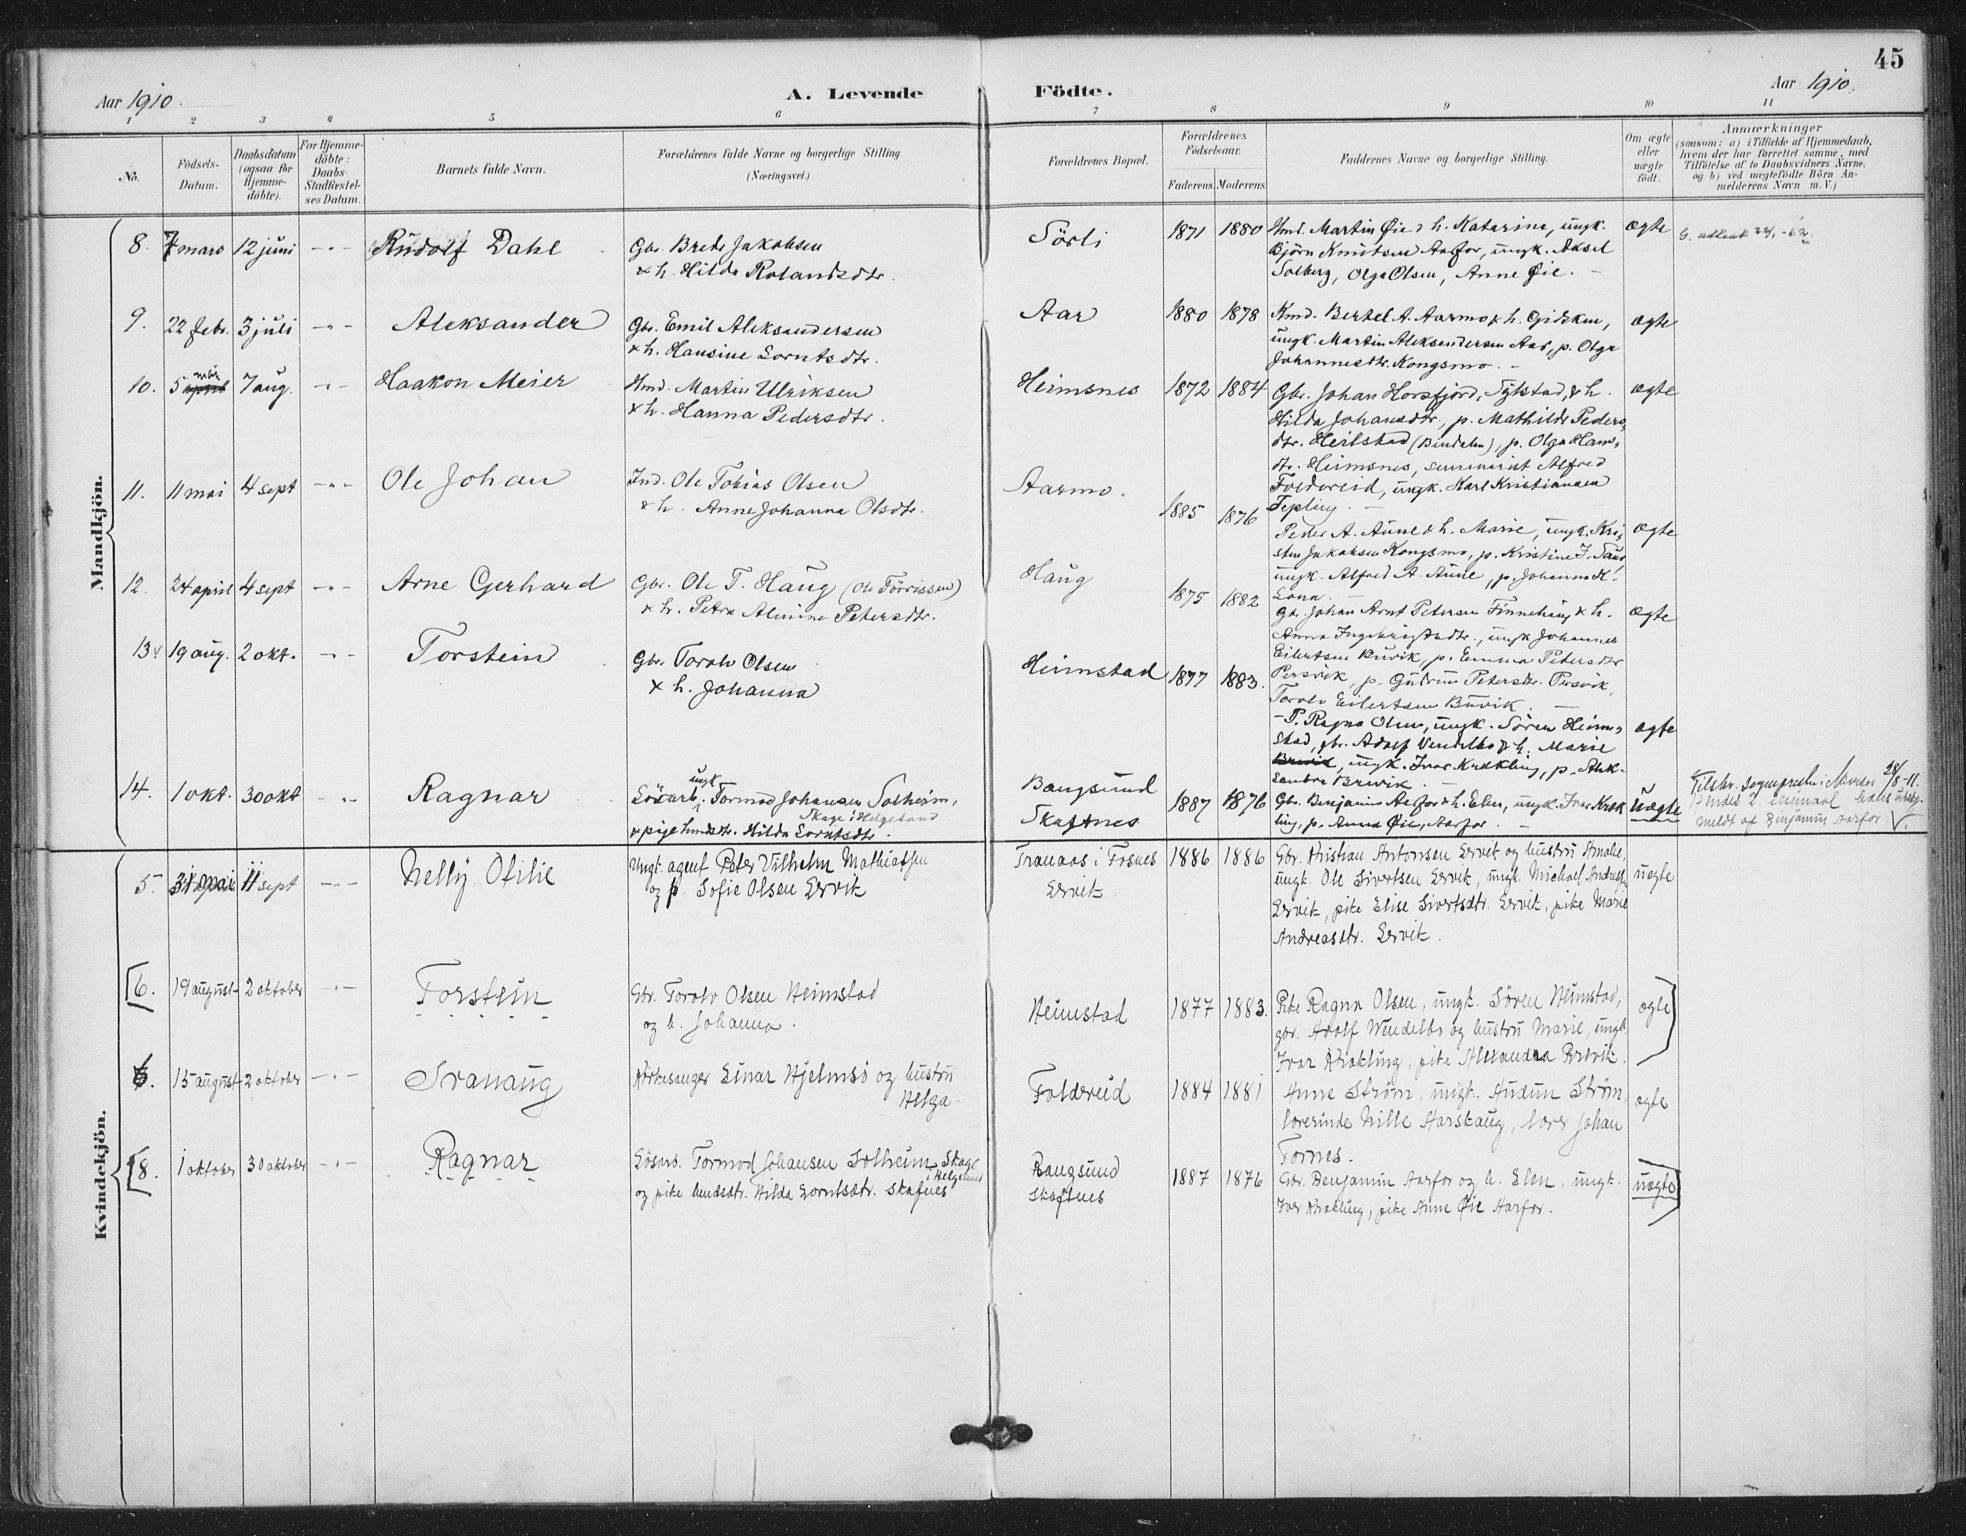 45
Aar 1910.
A. Levende
Födte.
Aar 1910.
1 2 3 4 5 6 7 8 9 10 11
No.
Födsels-
Datum.
Daabsdatum
(ogsaa for
Hjemme-
döbte).
For Hjemme-
döbte:
Daabs-
Stadfæstel-
ses Datum.
Barnets fulde Navn.
Forældrenes fulde Navne og borgerlige Stilling
(Næringsvei.)
Forældrenes Bopæl.
Forældrenes
Födselsaar.
Faderens. Moderens.
Faddernes Navne og borgerlige Stilling.
Om ægte
eller
uægte
födt.
Anmærkninger
(saasom: a) i Tilfælde af Hjemmedaab,
hvem der har forrettet samme, med
Tilföielse af to Daabsvidners Navne.
og b) ved uægtefödte Börn An-
melderens Navn m. V.)
Mandkjön.
8. 7 mars 12 juni - " - Rudolf Dahl
Gbr. Brede Jakobsen
& h. Hilda Rolandsdtr.
Sörli 1871 1880
Kmd. Martin Øie & h. Katarina, ungk.
Björn Knutsen Aarfor, ungk. Aksel
Solberg, Olga Olsen, Anne Øie. -
ægte
9. 22 febr. 3 juli - " - Aleksander
Gbr. Emil Aleksandersen
& h. Hansine Lorntsdtr.
Aar 1880 1878
Kmd. Bertel A. Aarmo & h. Gidsken,
ungk. Martin Aleksandersen Aar, p. Olga
Johannesdtr. Kongsmo. -
ægte
10. 5 april mai 7 aug. - " - Haakon Meier
Hmd. Martin Ulriksen
& h. Hanna Pedersdtr.
Heimsnes 1872 1884
Gbr. Johan Horsfjord, & h.
Hilda Johansdtr., p. Mathilde Peders-
dtr. Heilstad (Bindalen), p. Olga Hans-
dtr. Heimsnes, seminarist Alfred
Foldereid, ungk. Karl Kristiansen
Tepling. -
ægte
11. 11 mai 4 sept - " - Ole Johan
Ind. Ole Tobias Olsen
& h. Anne Johanna Olsdtr.
Aarmo. 1885 1876
Peder A. Aune & h. Marie, ungk. Kri-
sten Jakobsen Kongsmo, p. Kristine J.
ungk. Alfred A. Aune, p. Johanna K.
ægte
12. 24 april 4 sept - " - Arne Gerhard
Gbr. Ole T. Haug (Ole Törrissen)
& h. Petra Almine Petersdtr.
Haug 1875 1882
Gbr. Johan Arnt Petersen Finnehaug & h.
Anna Ingebrigtsdtr., ungk Johannes
Eilertsen Buvik, p. Emma Petersdtr
Persvik, p. Gudrun Petersdtr. Persvik,
Torolv Eilertsen Buvik. -
ægte
13. 19 aug. 2 okt. - " - Torstein
Gbr. Torolv Olsen
& h. Johanna
Heimstad 1877 1883.
- P. Ragna Olsen, ungk. Sören Heim-
stad, gbr. Adolf Vendelbo & h. Marie
Brevik, ungk. Ivar Krækling, p. Alek-
sandra Brevik. -
ægte
14. 1 okt. 30 okt - " - Ragnar
Lösarb. ungk Tormod Johansen Solheim,
Skage i Helgeland
& pige lmdsdtr. Hilda Lorntsdtr.
Bangsund
Skaftnes 1887 1876
Gbr. Benjamin Aarfor & h. Elen, ungk. Iver Kræk-
ling, p. Anna Øie, Aarfor. -
uægte
meldt af Benjamin Aarfor
Kvindekjön.
5. 31 mai 11 sept - " - Nelly Otilie
Ungk. agent Peter Vilhelm Mathiassen
og p. Sofie Olsen Eervik
Tranaas i Fosnes
Eervik. 1886 1886
Gbr. Kristian Antonsen Eervik og hustru Amalie,
ungk. Ole Sivertsen Eervik, ungk. Michael Andreassen
Eervik, pike Elise Sivertsdtr. Eervik, pike Marie
Andreasdtr. Eervik.
uægte
[6. 19 august 2 oktober - " - Torstein
Gbr. Torolv Olsen Heimstad
og h. Johanna.
Heimstad 1877 1883.
Pike Ragna Olsen, ungk. Sören Heimstad,
gbr. Adolf Windelbo og hustru Marie, ungk.
Ivar Krækling, pike Alexandra Brevik.
ægte
6. 15 august 2 oktober - " - Svanaug
Kirkesanger Einar Hjelmsö og hustru
Helga.
Foldereid 1884 1881
Anne Ström, ungk. Audun Ström,
lærerinde Nille Aarskaug, lærer Johan
Fornes.
ægte
[8. 1 oktober 30 oktober - " - Ragnar
Lösarb. Tormod Johansen Solheim, Skage
i Helgeland
og pike lmdsdtr. Hilda Lorntsdtr. Skafnes
Bangsund
Skaftnes 1887 1876
Gbr. Benjamin Aarfor og h. Elen, ungk.
Iver Krækling, pike Anne Øie Aarfor.
uægte